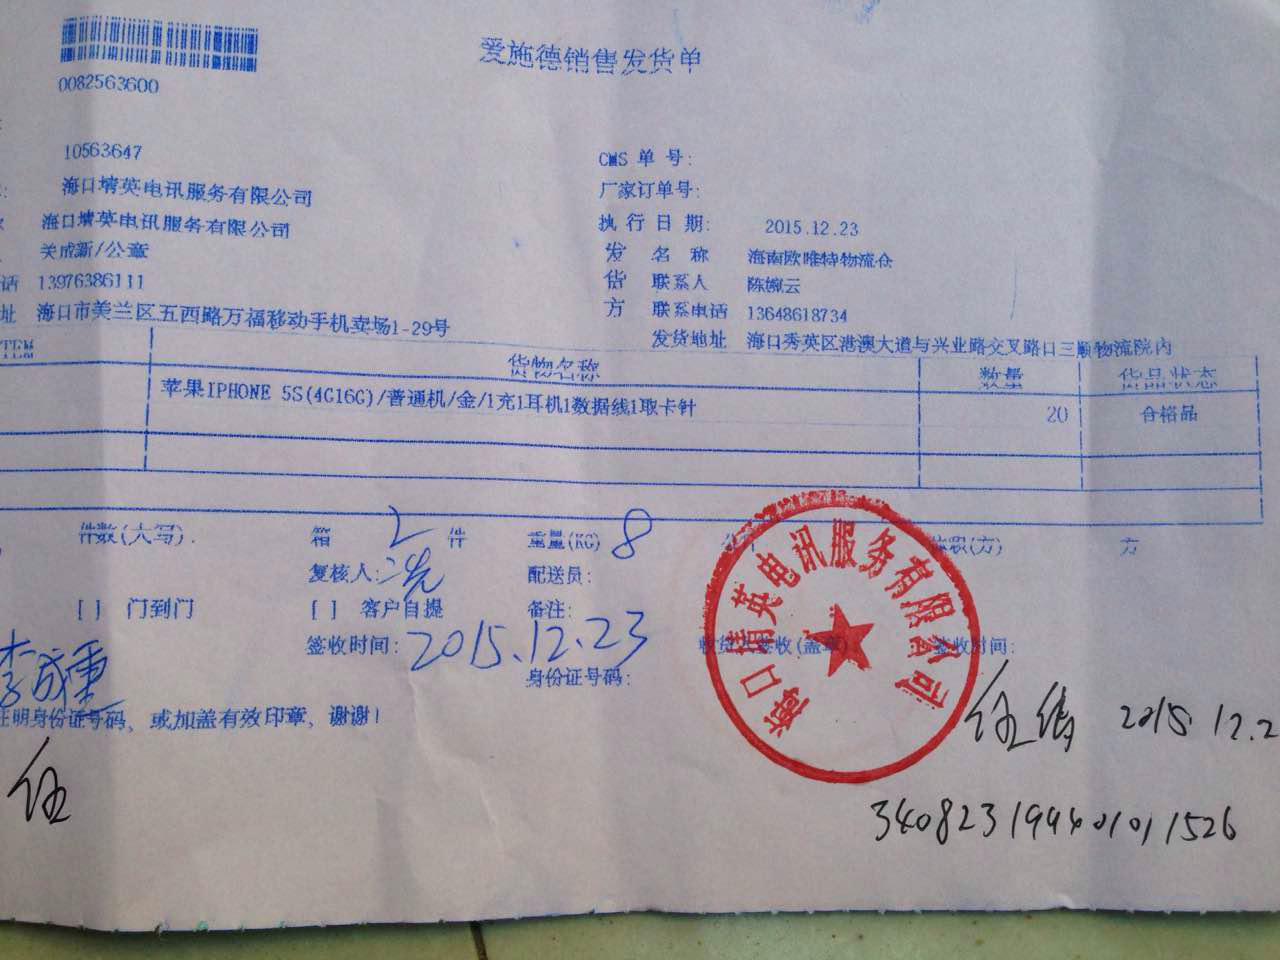 爱施德销售发货单
0082563600
10563647
CMS 单 号:
海口精英电讯服务有限公司
厂家订单号:
海口精英电讯服务有限公司
执 行 日 期: 2015.12.23
关成新/公章
发 名 称 海南欧唯特物流仓
话 13976386111
货 联系人 陈婉云
方 联系电话 13648618734
址 海口市美兰区五西路万福移动手机卖场1-29号
发货地址 海口秀英区港澳大道与兴业路交叉路口三顺物流院内
ITEM 货物名称 数量 货品状态
苹果IPHONE 5S(4G16G)/普通机/金/1充1耳机1数据线1取卡针 20 合格品
件数(大写): 箱 2 件 重量(KG) 8 体积(方) 方
复核人: 配送员:
[ ] 门到门 [ ] 客户自提 备注:
签收时间: 2015.12.23 收货人签收(盖章) 签收时间:
身份证号码:
证明身份证号码、或加盖有效印章，谢谢!
海口精英电讯服务有限公司
伍倩 2015.12.2
伍
340823199401011526